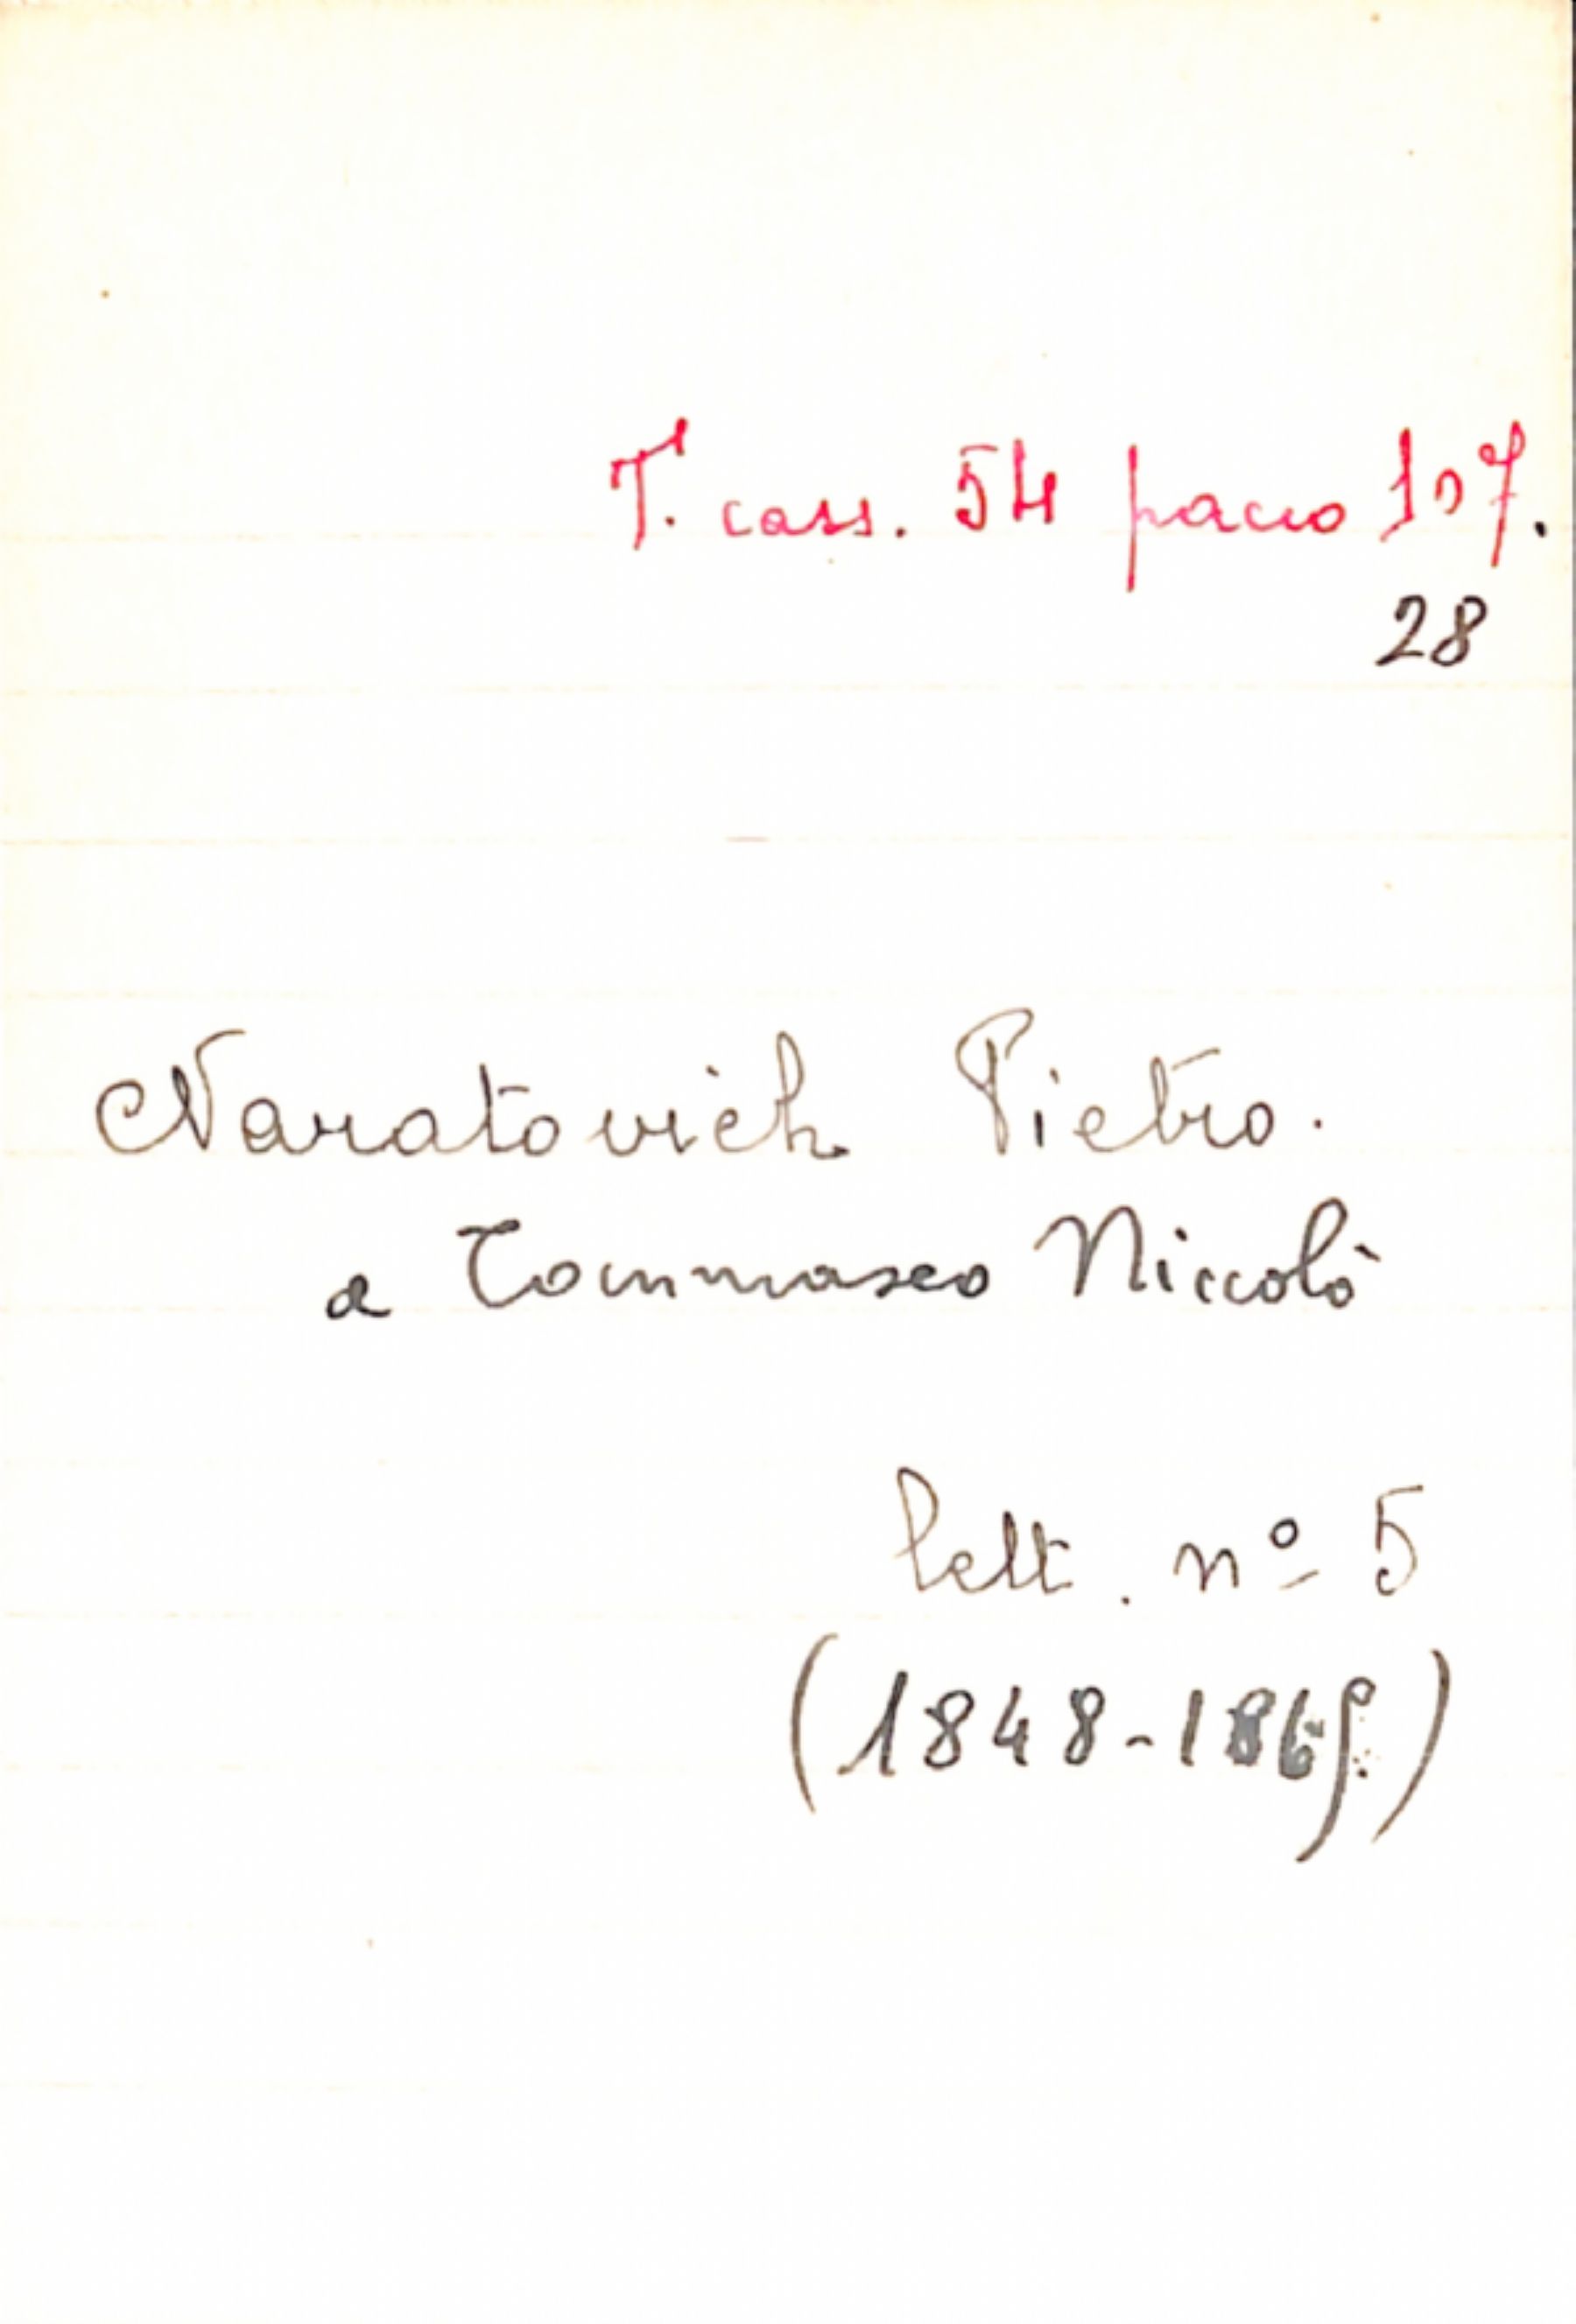 T. cass. 54 pacco 107.
28
Naratovich Pietro.
a Tommaseo Niccolò
lett. nº 5
(1848-1869)